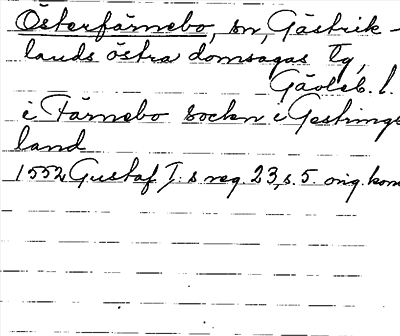 Österfärnebo, sn, Gästrik-
lands östra domsagas tg,
Gävleb. l.
i Färnebo sockn i Gestringe
land
1552 Gustaf I:s reg. 23, s. 5. orig. kom